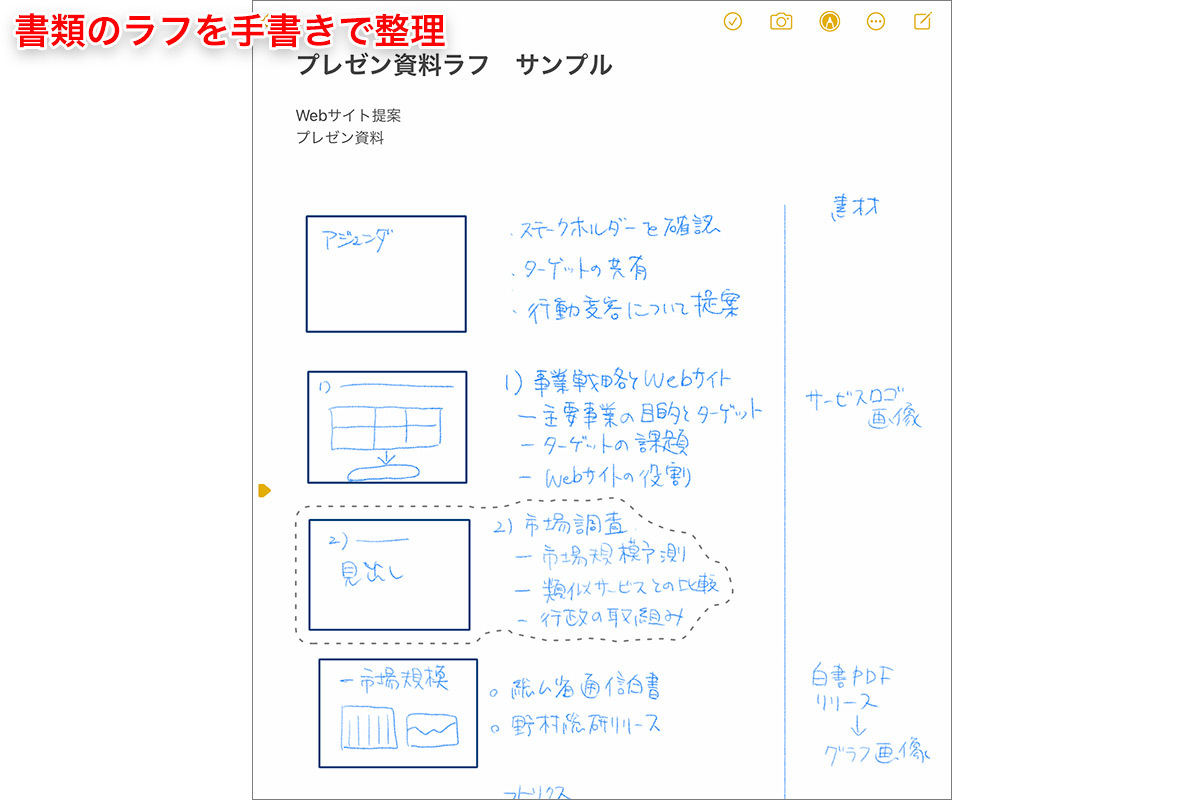 書類のラフを手書きで整理
プレゼン資料ラフ　サンプル
Webサイト提案
プレゼン資料
素材
アジェンダ
・ステークホルダーを確認
・ターゲットの共有
・行動変容について提案
1)
1) 事業戦略とWebサイト
ー主要事業の目的とターゲット
ーターゲットの課題
ーWebサイトの役割
サービスロゴ
画像
2)
見出し
2) 市場調査
ー市場規模予測
ー類似サービスとの比較
ー行政の取組み
ー市場規模
○ 総ム省通信白書
○ 野村総研リリース
白書PDF
リリース
↓
グラフ画像